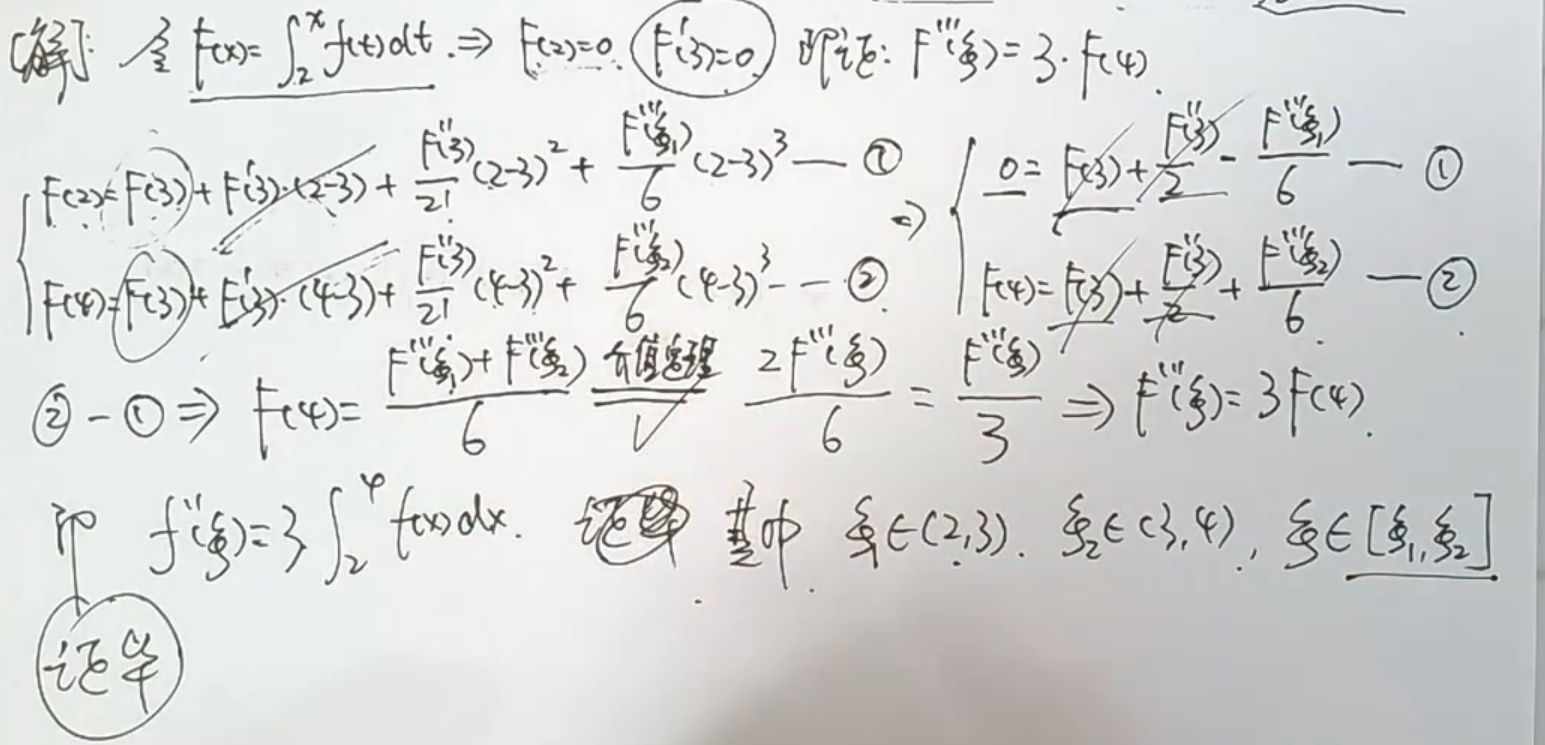 [解]: 令 F(x)=∫₂ˣf(t)dt. ⇒ F(2)=0. F'(3)=0 即证: F'''(ξ)=3·F(4).
F(2)=F(3)+F'(3)·(2-3)+F''(3)/2!(2-3)²+F'''(ξ₁)/6(2-3)³—① ⇒ 0=F(3)+F''(3)/2-F'''(ξ₁)/6—①
F(4)=F(3)+F'(3)·(4-3)+F''(3)/2!(4-3)²+F'''(ξ₂)/6(4-3)³--② F(4)=F(3)+F''(3)/2+F'''(ξ₂)/6—②.
②-①⇒ F(4)=(F'''(ξ₁)+F'''(ξ₂))/6 介值定理 2F'''(ξ)/6=F'''(ξ)/3⇒F'''(ξ)=3F(4).
即 f''(ξ)=3∫₂⁴f(x)dx. 其中 ξ₁∈(2,3). ξ₂∈(3,4), ξ∈[ξ₁,ξ₂]
证毕